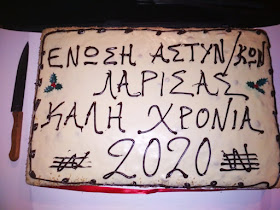 ΕΝΩΣΗ ΑΣΤΥΝ/ΚΩΝ
ΛΑΡΙΣΑΣ
ΚΑΛΗ ΧΡΟΝΙΑ
2020